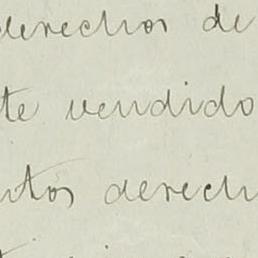 derechos de
te vendido
ntos derech